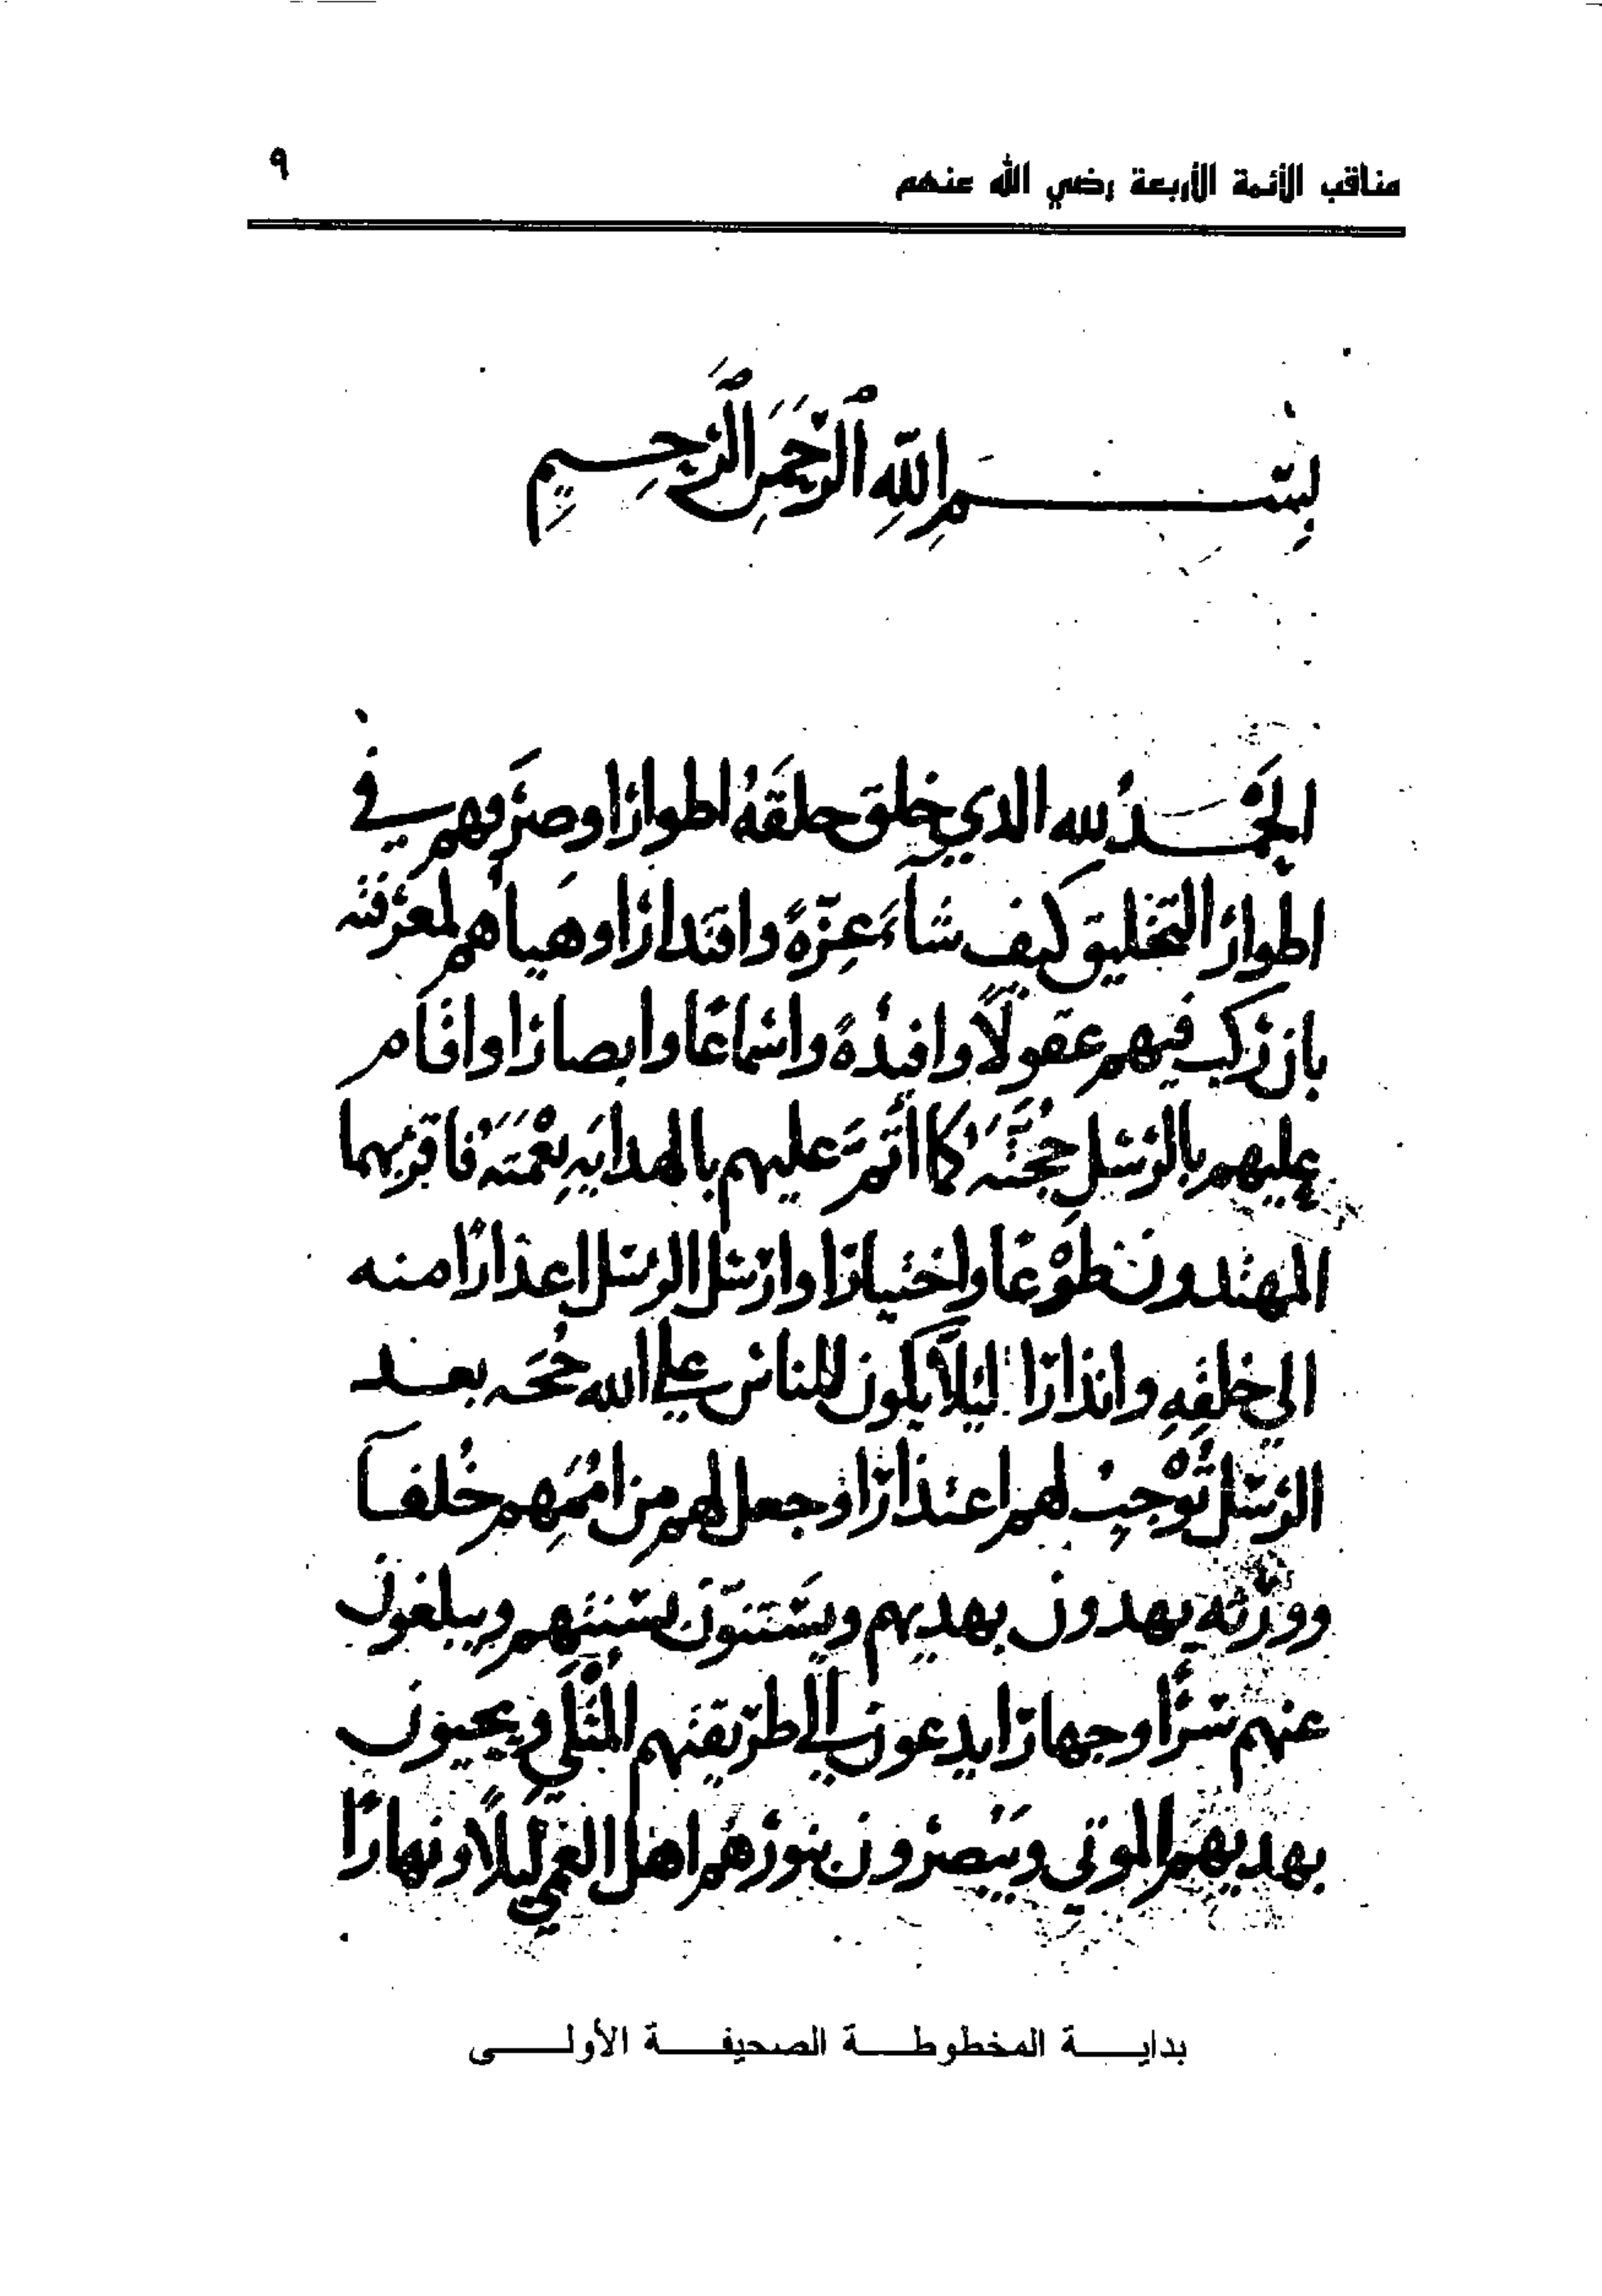 مناقب الأئمة الأربعة رضي الله عنهم
٩
بِسْمِ اللَّهِ الرَّحْمَنِ الرَّحِيمِ
الحَمْدُ لله الذي خلق خلقَهُ اطوارًا وصرَّفهم في
اطوار التخليق كيف شاءَ عِزّةً واقتدارًا وهيأهم لمعرفته
بان ركب فيهم عقولًا وافئدةً واسماعًا وابصارًا واقام
عليهم بالرسل حُجَّتَه كما أتمَّ عليهم بالهدايَةِ نِعْمَتَه فاقر بهما
المهتدون طَوْعًا واختيارًا وارسل الرسل اعذارًا منه
الى خلقِهِ وانذارًا لئلا يكون للناس على الله حُجه بعد
الرسل تُوْجِبُ لهم اعتذارًا وجعل لهم من امَمِهِم خُلفآ
وورثه يهدون بهديهم ويستنّون بسنتهم ويبلغون
عنهم سرًّا وجهارًا يدعون الى طريقتهم المُثْلَى ويحيون
بهديهم الموتى ويبصرون بنورهم اهل العمى ليلًا ونهارًا
بدايـة المخطوطـة الصحيفـة الأولـى